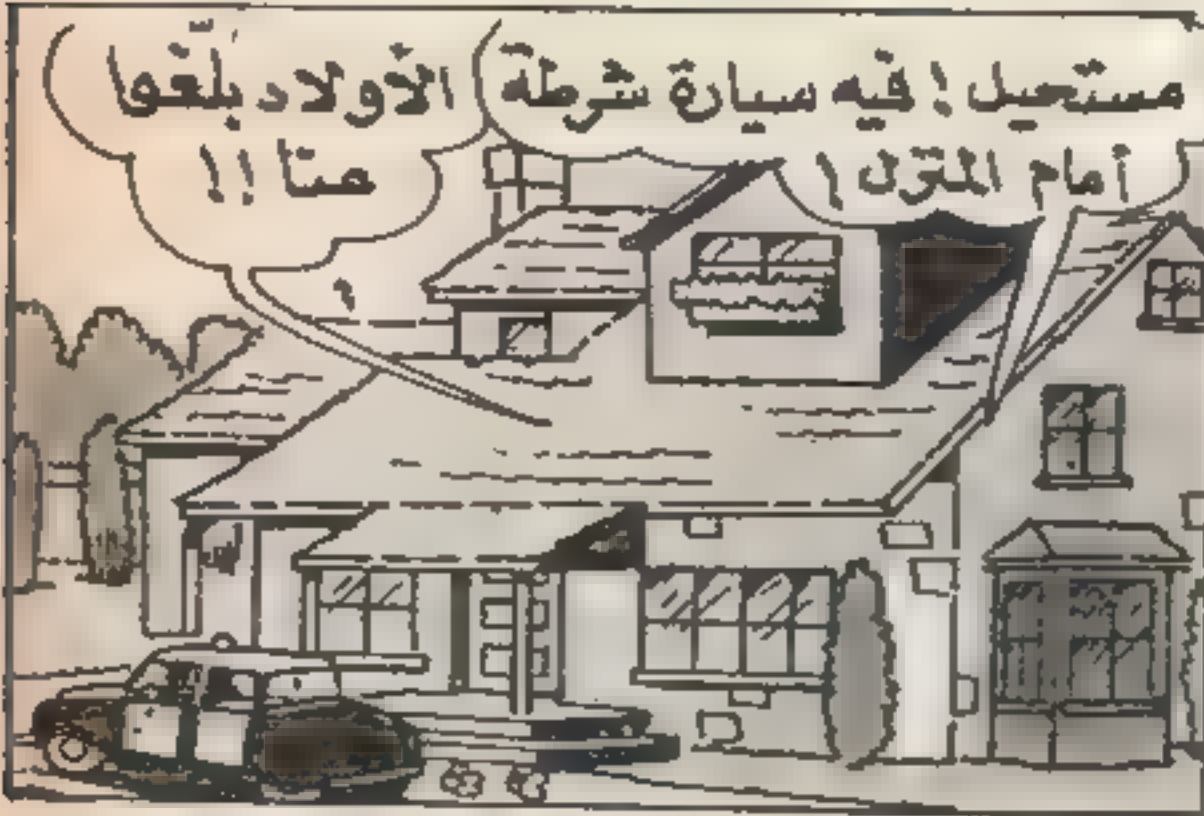 مستحيل ! فيه سيارة شرطة
أمام المنزل !
الأولاد بلّغوا
عنّا !!